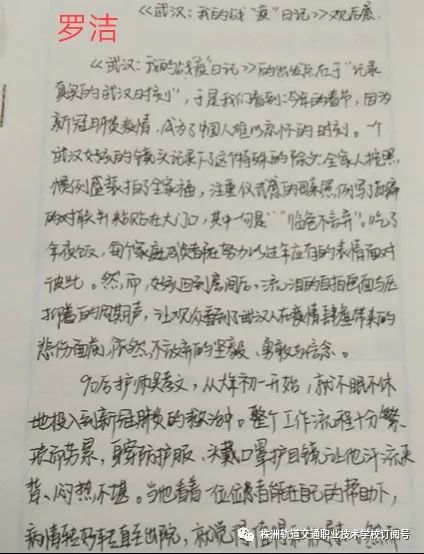 《武汉：我的战“疫”日记》观后感
罗洁
《武汉：我的战“疫”日记》的出发点在于“记录
真实的武汉时刻”，于是我们看到：今年的春节，因为
新冠肺炎疫情，成为了中国人难以忘怀的时刻。一个
武汉女孩的镜头记录下了这个特殊的除夕：全家人按照
惯例盛装拍了全家福，注重仪式感的母亲照例写
的对联并粘贴在大门口，其中一句是“临危不言弃”。吃了
年夜饭，每个家庭成员都在努力以过年应有的表情面对
彼此。然而，女孩回到房间后，流泪的自拍画面与压
抑的哭声，让观众看到了武汉人在疫情肆虐带来的
悲伤面前，依然不放弃的坚毅、勇敢与信念。
90后护师吴孝文，从大年初一开始，就不眠不休
地投入到新冠肺炎的救治中。整个工作流程十分繁
琐而劳累，身穿防护服、头戴口罩护目镜让他汗流浃
背、闷热不堪。当他看着一位位患者能在自己的帮助下，
病情转好转直至出院，就觉得
株洲轨道交通职业技术学校订阅号